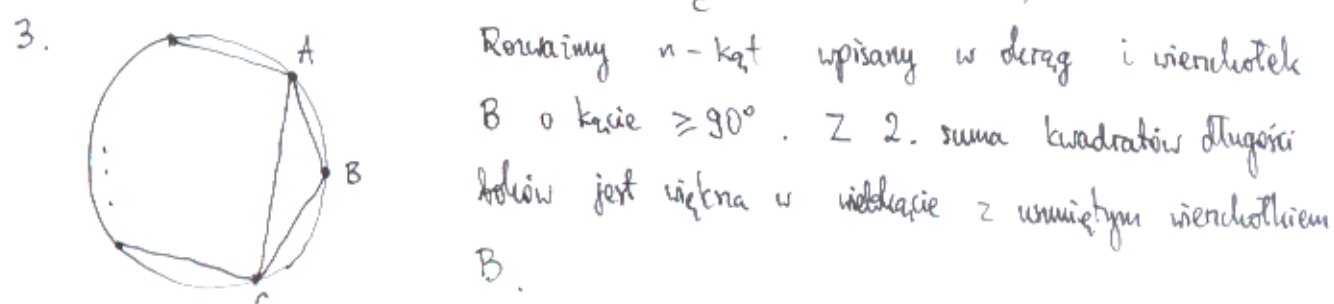 c
3.
A
Rozważmy n-kąt wpisany w okrąg i wierzchołek
B o kącie ≥ 90°. Z 2. suma kwadratów długości
B
boków jest większa w wielokącie z usuniętym wierzchołkiem
B.
C